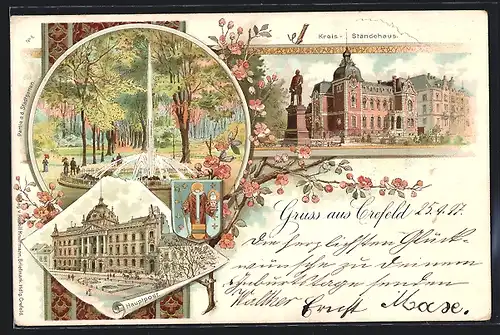 Kreis - Ständehaus.
Partie a. d. Stadtgarten
Hauptpost
Gruss aus Crefeld 25.4.97.
Die herzlichsten Glück-
wünsche zu deinem
Geburtstage senden
Walther Ernst Max.